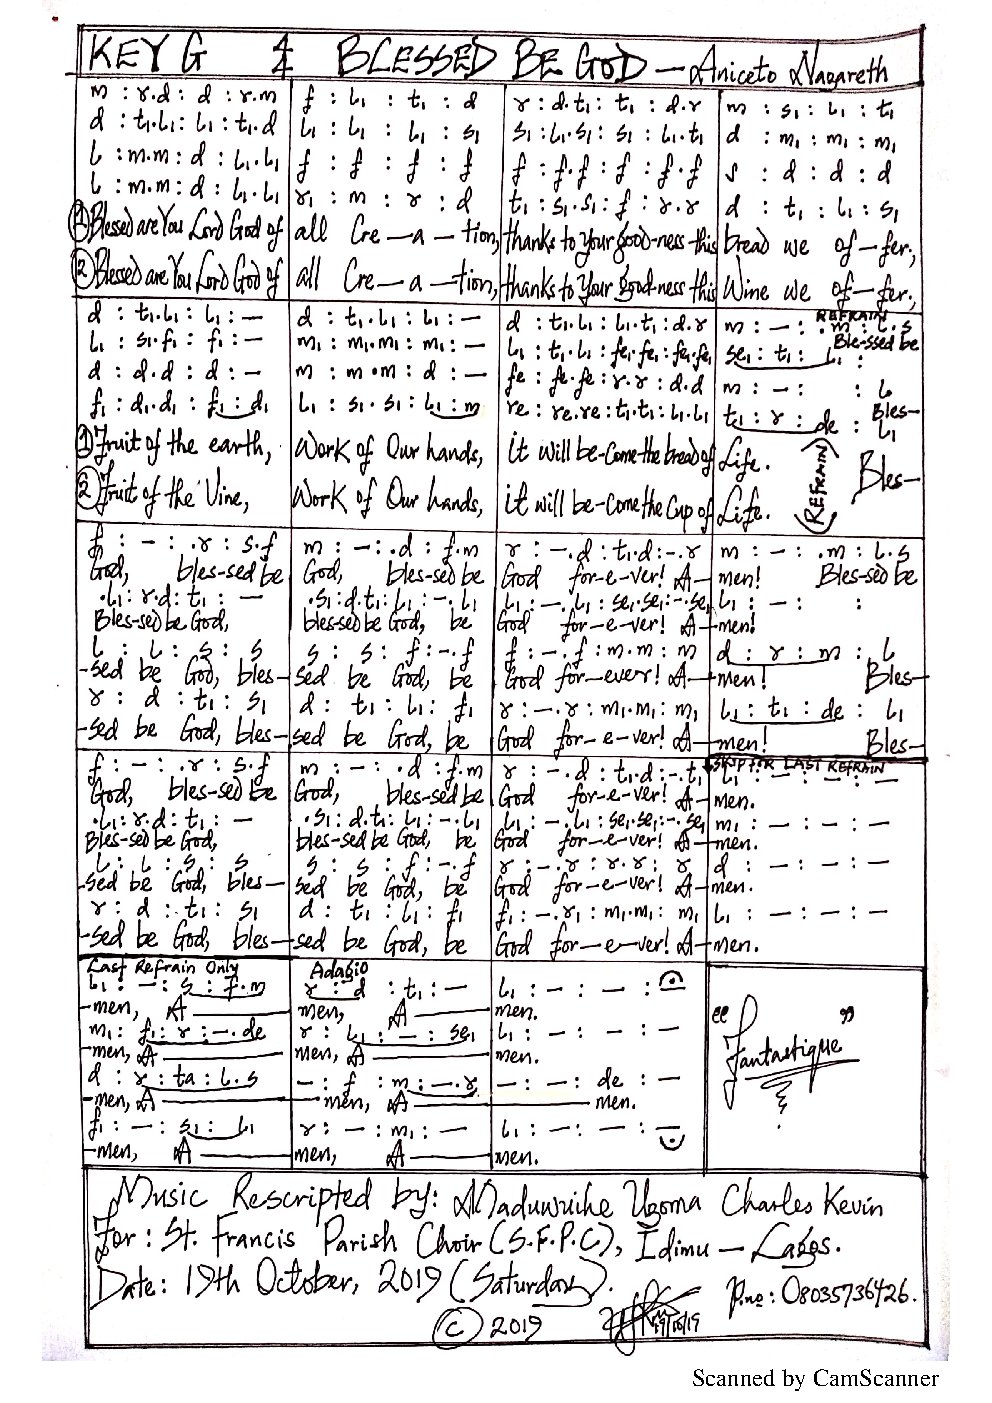 KEY G 4/4 BLESSED BE GOD — Aniceto Nazareth
m : r.d : d : r.m | f : l₁ : t₁ : d | r : d.t₁ : t₁ : d.r | m : s₁ : l₁ : t₁
d : t₁.l₁ : l₁ : t₁.d | l₁ : l₁ : l₁ : s₁ | s₁ : l₁.s₁ : s₁ : l₁.t₁ | d : m₁ : m₁ : m₁
l : m.m : d : l₁.l₁ | f : f : f : f | f : f.f : f : f.f | s : d : d : d
l : m.m : d : l₁.l₁ | r₁ : m : r : d | t₁ : s₁.s₁ : f : r.r | d : t₁ : l₁ : s₁
① Blessed are You Lord God of all Cre—a—tion, thanks to Your good-ness this bread we of—fer,
② Blessed are You Lord God of all Cre—a—tion, thanks to Your good-ness this Wine we of—fer,
REFRAIN
d : t₁.l₁ : l₁ : — | d : t₁.l₁ : l₁ : — | d : t₁.l₁ : l₁.t₁ : d.r | m : — : .m : l.s
Ble-ssed be
l₁ : s₁.f₁ : f₁ : — | m₁ : m₁.m₁ : m₁ : — | l₁ : t₁.l₁ : fe₁.fe₁ : fe₁.fe₁ | se₁ : t₁ : l₁ :
d : d.d : d : — | m : m.m : d : — | fe : fe.fe : r.r : d.d | m : — : : l
Bles—
f₁ : d₁.d₁ : f₁ : d₁ | l₁ : s₁.s₁ : l₁ : m | re : re.re : t₁.t₁ : l₁.l₁ | t₁ : r : de : l₁
① Fruit of the earth, Work of Our hands, it will be-Come the bread of Life. (REFRAIN) Bles—
② Fruit of the Vine, Work of Our hands, it will be-Come the Cup of Life.
f : — : .r : s.f | m : — : .d : f.m | r : — .d : t₁.d : — .r | m : — : .m : l.s
God, bles-sed be God, bles-sed be God for-e-ver! A—men! Bles-sed be
.l₁ : r.d : t₁ : — | .s₁ : d.t₁ : l₁ : — .l₁ | l₁ : — .l₁ : se₁.se₁ : — .se₁ | l₁ : — : :
Bles-sed be God, bles-sed be God, be God for-e-ver! A—men!
l : l : s : s | s : s : f : — .f | f : — .f : m.m : m | d : r : m : l
-sed be God, bles—sed be God, be God for-ever! A—men! Bles—
r : d : t₁ : s₁ | d : t₁ : l₁ : f₁ | r : — .r : m₁.m₁ : m₁ | l₁ : t₁ : de : l₁
-sed be God, bles—sed be God, be God for-e-ver! A—men! Bles—
SKIP FOR LAST REFRAIN
f : — : .r : s.f | m : — : .d : f.m | r : — .d : t₁.d : — .t₁ | l₁ : — : — : —
God, bles-sed be God, bles-sed be God for-e-ver! A—men.
.l₁ : r.d : t₁ : — | .s₁ : d.t₁ : l₁ : — .l₁ | l₁ : — .l₁ : se₁.se₁ : — .se₁ | m₁ : — : — : —
Bles-sed be God, bles-sed be God, be God for-e-ver! A—men.
l : l : s : s | s : s : f : — .f | r : — .r : r.r : r | d : — : — : —
-sed be God, bles—sed be God, be God for-e-ver! A—men.
r : d : t₁ : s₁ | d : t₁ : l₁ : f₁ | f₁ : — .r₁ : m₁.m₁ : m₁ | l₁ : — : — : —
-sed be God, bles—sed be God, be God for-e-ver! A—men.
Last Refrain Only Adagio
l₁ : — : s : f.m | r : d : t₁ : — | l₁ : — : — : —
-men, A—men, A—men.
m₁ : f₁ : r : — .de | r : l₁ : — : se₁ | l₁ : — : — : —
-men, A—men, A—men.
d : r : ta : l.s | — : f : m : — .r | — : — : de : —
-men, A—men, A—men.
f₁ : — : s₁ : l₁ | r : — : m₁ : — | l₁ : — : — : —
-men, A—men, A—men.
"Fantastique"
Music Rescripted by: Maduwuihe Ugoma Charles Kevin
For : St. Francis Parish Choir (S.F.P.C), Idimu — Lagos.
Date : 19th October, 2019 (Saturday).
P.no : 08035736426.
© 2019
19/10/19
Scanned by CamScanner